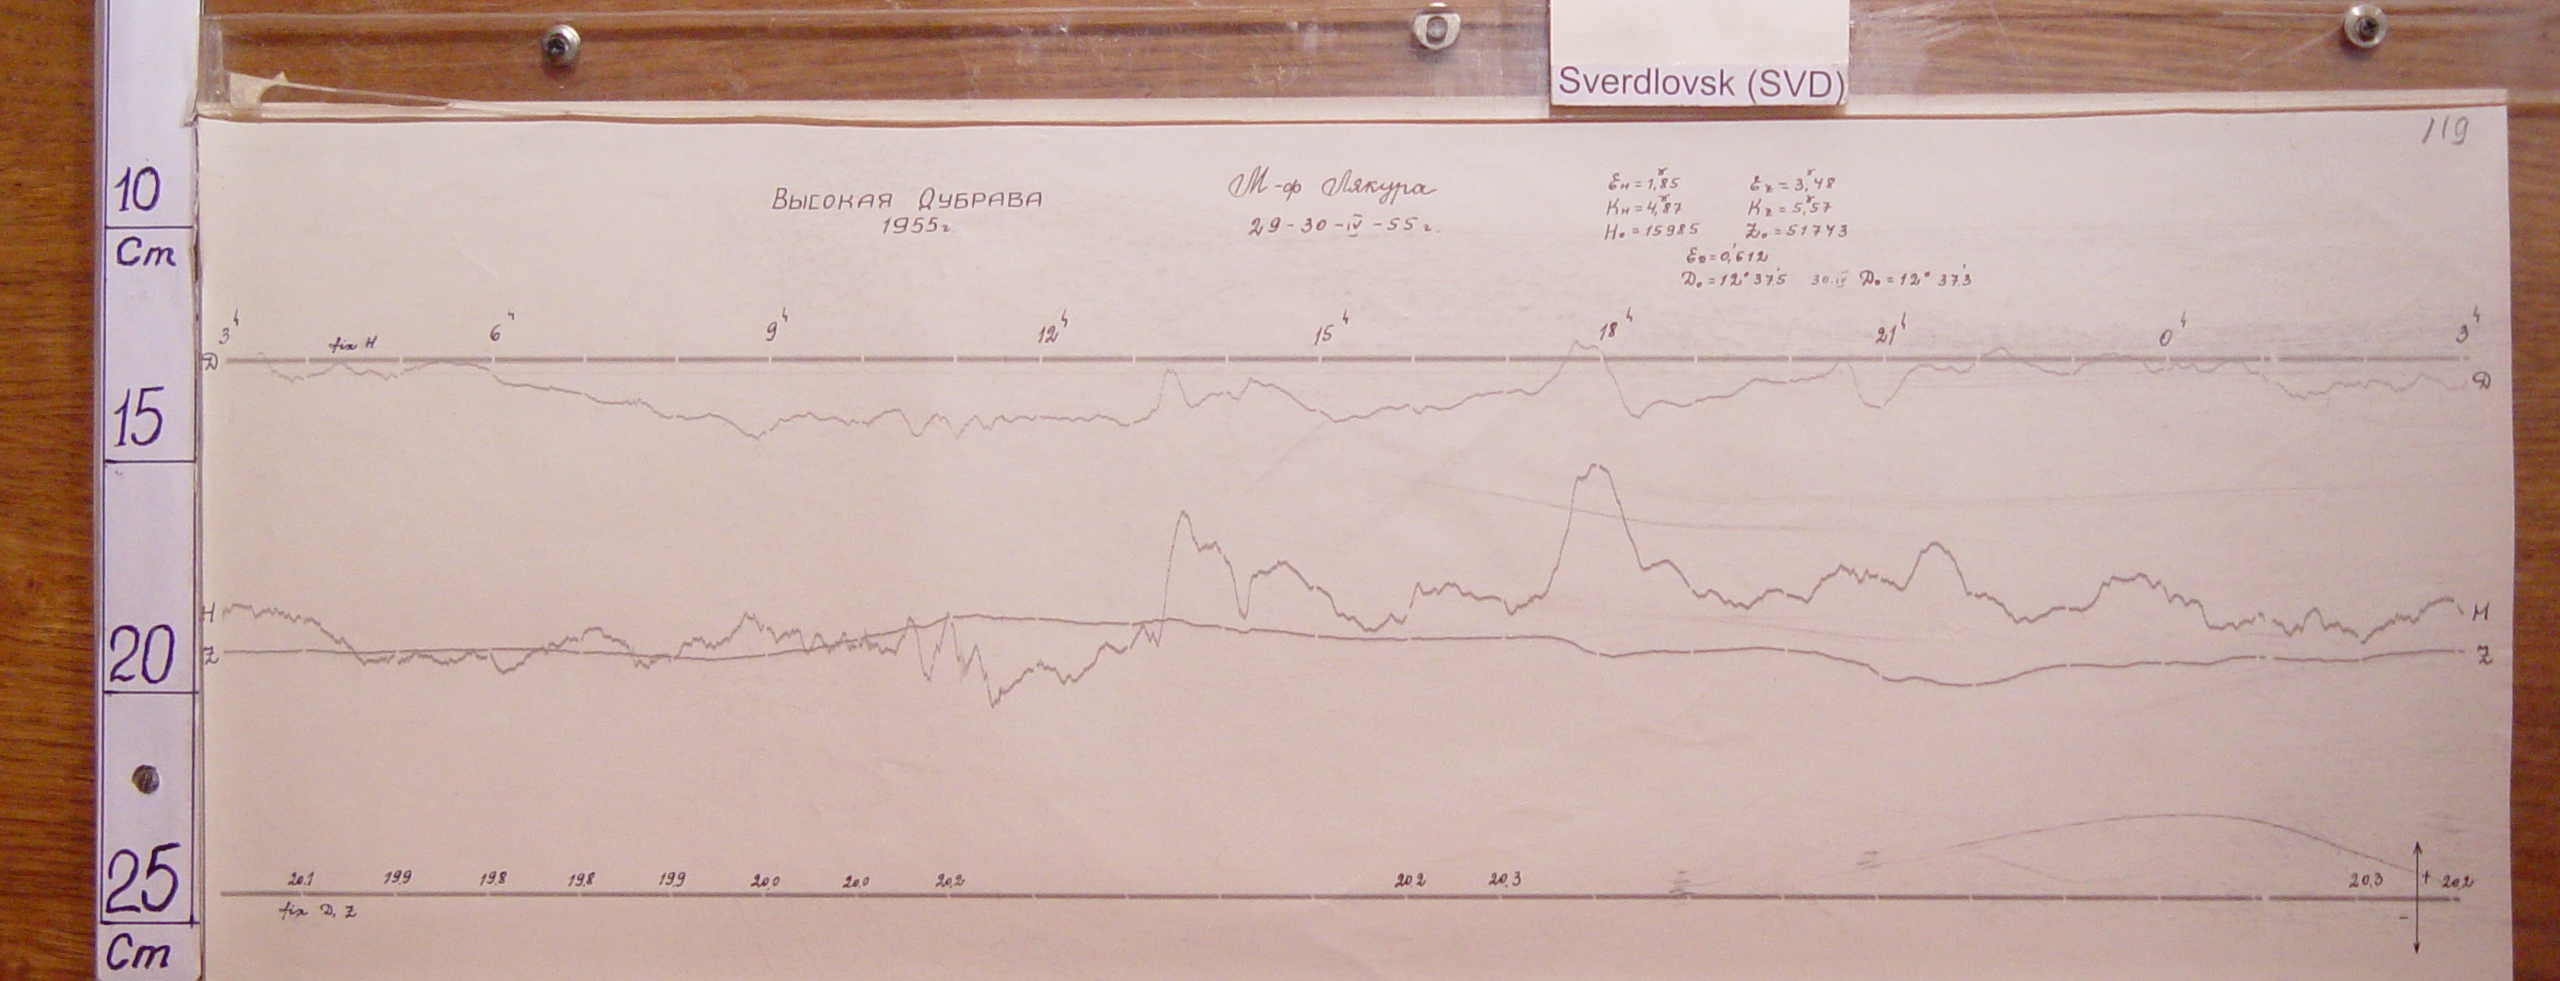 Sverdlovsk (SVD)
119
10
Cm
15
20
25
Cm
Высокая Дубрава
1955г.
М-ф Лякура
29-30-IV-55г.
Ен=1,85 Ez=3,48
Кн=4,87 Kz=5,57
H₀=15985 Z₀=51743
ED=0,612
D₀=12°37,5 30.IV D₀=12°37,3
3ч 6ч 9ч 12ч 15ч 18ч 21ч 0ч 3ч
fix H
D D
H H
Z Z
20,1 19,9 19,8 19,8 19,9 20,0 20,0 20,2 20,2 20,3 20,3 + 20,2
fix D, Z -